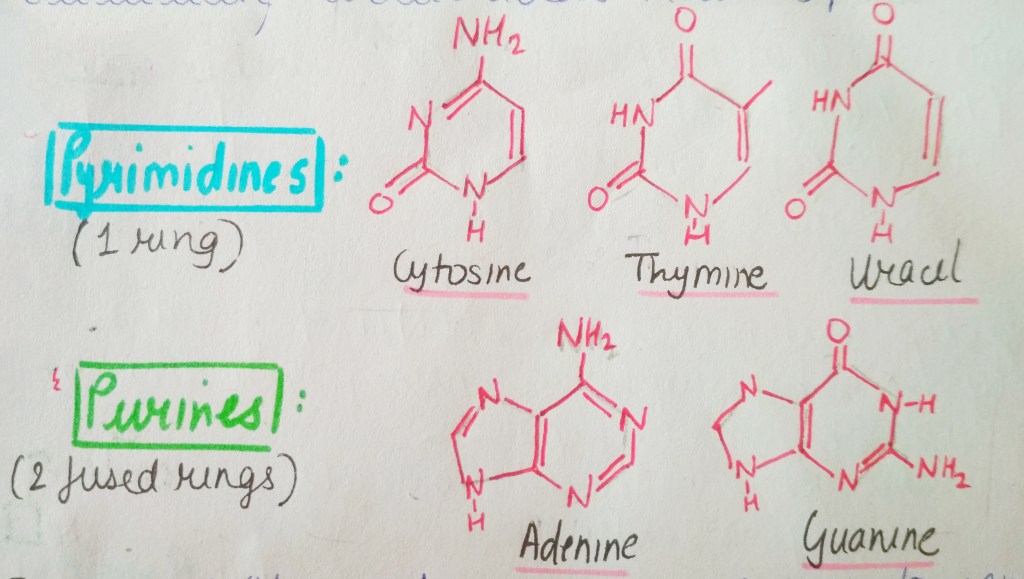 NH2
O
O
N
HN
HN
Pyrimidines:
O
N
H
O
N
H
O
N
H
(1 ring)
Cytosine
Thymine
Uracil
NH2
O
Purines:
N
N
N
N-H
(2 fused rings)
N
H
N
N
H
N
NH2
Adenine
Guanine